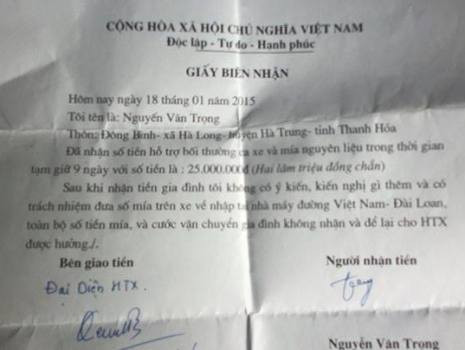 CỘNG HÒA XÃ HỘI CHỦ NGHĨA VIỆT NAM
Độc lập - Tự do - Hạnh phúc
GIẤY BIÊN NHẬN
Hôm nay ngày 18 tháng 01 năm 2015
Tôi tên là: Nguyễn Văn Trọng
Thôn: Đông Bình- xã Hà Long- huyện Hà Trung- tỉnh Thanh Hóa
Đã nhận số tiền hỗ trợ bồi thường ca xe và mía nguyên liệu trong thời gian
tạm giữ 9 ngày với số tiền là : 25.000.000đ (Hai lăm triệu đồng chẵn)
Sau khi nhận tiền gia đình tôi không có ý kiến, kiến nghị gì thêm và có
trách nhiệm đưa số mía trên xe về nhập tại nhà máy đường Việt Nam- Đài Loan,
toàn bộ số tiền mía, và cước vận chuyển gia đình không nhận và để lại cho HTX
được hưởng./.
Bên giao tiền
Người nhận tiền
Đại Diện HTX.
Nguyễn Văn Trọng